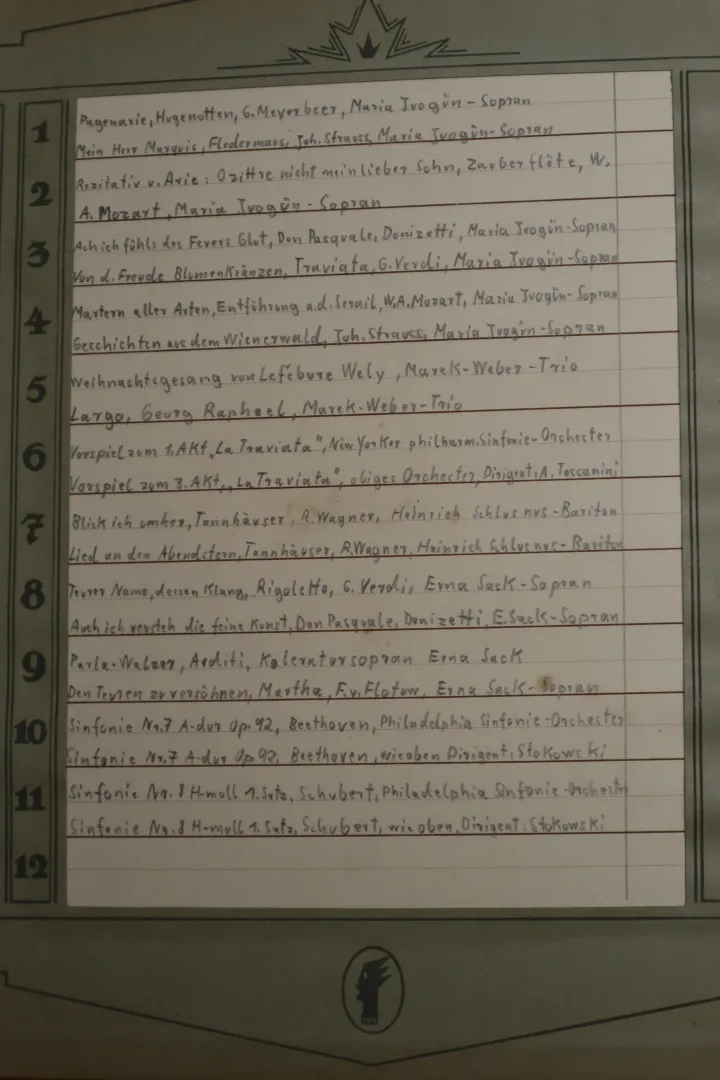 1
Pagenarie, Hugenotten, G. Meyerbeer, Maria Ivogün - Sopran
Mein Herr Marquis, Fledermaus, Joh. Strauss, Maria Ivogün - Sopran
2
Rezitativ u. Arie: O zittre nicht mein lieber Sohn, Zauberflöte, W.
A. Mozart, Maria Ivogün - Sopran
3
Ach ich fühls des Feuers Glut, Don Pasquale, Donizetti, Maria Ivogün - Sopran
Von d. Freude Blumenkränzen, Traviata, G. Verdi, Maria Ivogün - Sopran
4
Martern aller Arten, Entführung a.d. Serail, W.A. Mozart, Maria Ivogün - Sopran
Geschichten aus dem Wienerwald, Joh. Strauss, Maria Ivogün - Sopran
5
Weihnachtsgesang von Lefébure Wely, Marek-Weber-Trio
Largo, Georg Raphael, Marek-Weber-Trio
6
Vorspiel zum 1. Akt „La Traviata", New Yorker philharm. Sinfonie-Orchester
Vorspiel zum 3. Akt „La Traviata", obiges Orchester, Dirigent: A. Toscanini
7
Blick ich umher, Tannhäuser, R. Wagner, Heinrich Schlusnus - Bariton
Lied an den Abendstern, Tannhäuser, R. Wagner, Heinrich Schlusnus - Bariton
8
Teurer Name, dessen Klang, Rigoletto, G. Verdi, Erna Sack - Sopran
Auch ich versteh die feine Kunst, Don Pasquale, Donizetti, E. Sack - Sopran
9
Parla-Walzer, Arditi, Koleratursopran Erna Sack
Den Teuren zu versöhnen, Martha, F.v. Flotow, Erna Sack - Sopran
10
Sinfonie Nr. 7 A-dur Op. 92, Beethoven, Philadelphia Sinfonie-Orchester
Sinfonie Nr. 7 A-dur Op 92, Beethoven, wie oben Dirigent: Stokowski
11
Sinfonie Nr. 8 H-moll 1. Satz, Schubert, Philadelphia Sinfonie-Orchester
Sinfonie Nr. 8 H-moll 1. Satz, Schubert, wie oben, Dirigent: Stokowski
12